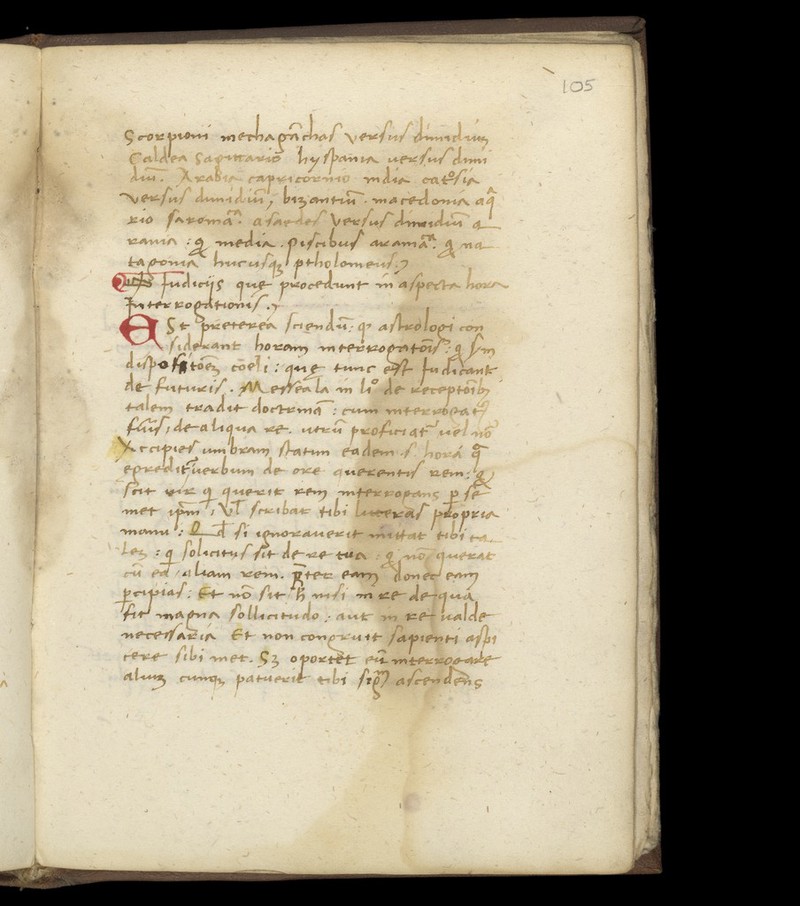 105
Scorpioni mechaganchas versus dimidium
Caldea Sagittario hyspania versus dimi
diũ. Arabia capricornio india catosia
versus dimidiũ, bizantiũ. macedonia aq̃
rio saromã. asaedes versus dimidiũ a
rania : q̃ media. piscibus aramã. q̃ na
tagonia hucusq3 ptholomeus.
Judiciis que procedunt in aspecta hora
Interrogationis.
ESt preterea sciendũ: q̃ astrologi con
siderant horam interrogatõis: q̃ sm
dispositõem coeli: que tunc est Judicant
de futuris. Messeala in li° de receptõib3
talem tradit doctrinã: cum interrogat᷒
fuis, de aliqua re. utrũ proficiat uel nõ
Accipies umbram statim eadem .s. horá q̃
egredit᷒ verbum de ore querentis rem: q̃
scit uir qi querit rem interrogans p̱ se
met ipm̃, Vl̃ scribat tibi litteras propria
manu: Qd̃ si ignoraverit mittat tibi ta
lem: qi solicitus sit de re tua: q̃ nõ querat
cũ ea aliam rem. p̃ter eam donec eam
p̱cipias: Et nõ sit h̃ nisi in re de qua
fit magna sollicitudo: aut in re valde
necessaria Et non congruit sapienti aspi
cere sibi met. S3 oportet eũ interrogare
alium cumq3 patuerit tibi sig̃ ascendens